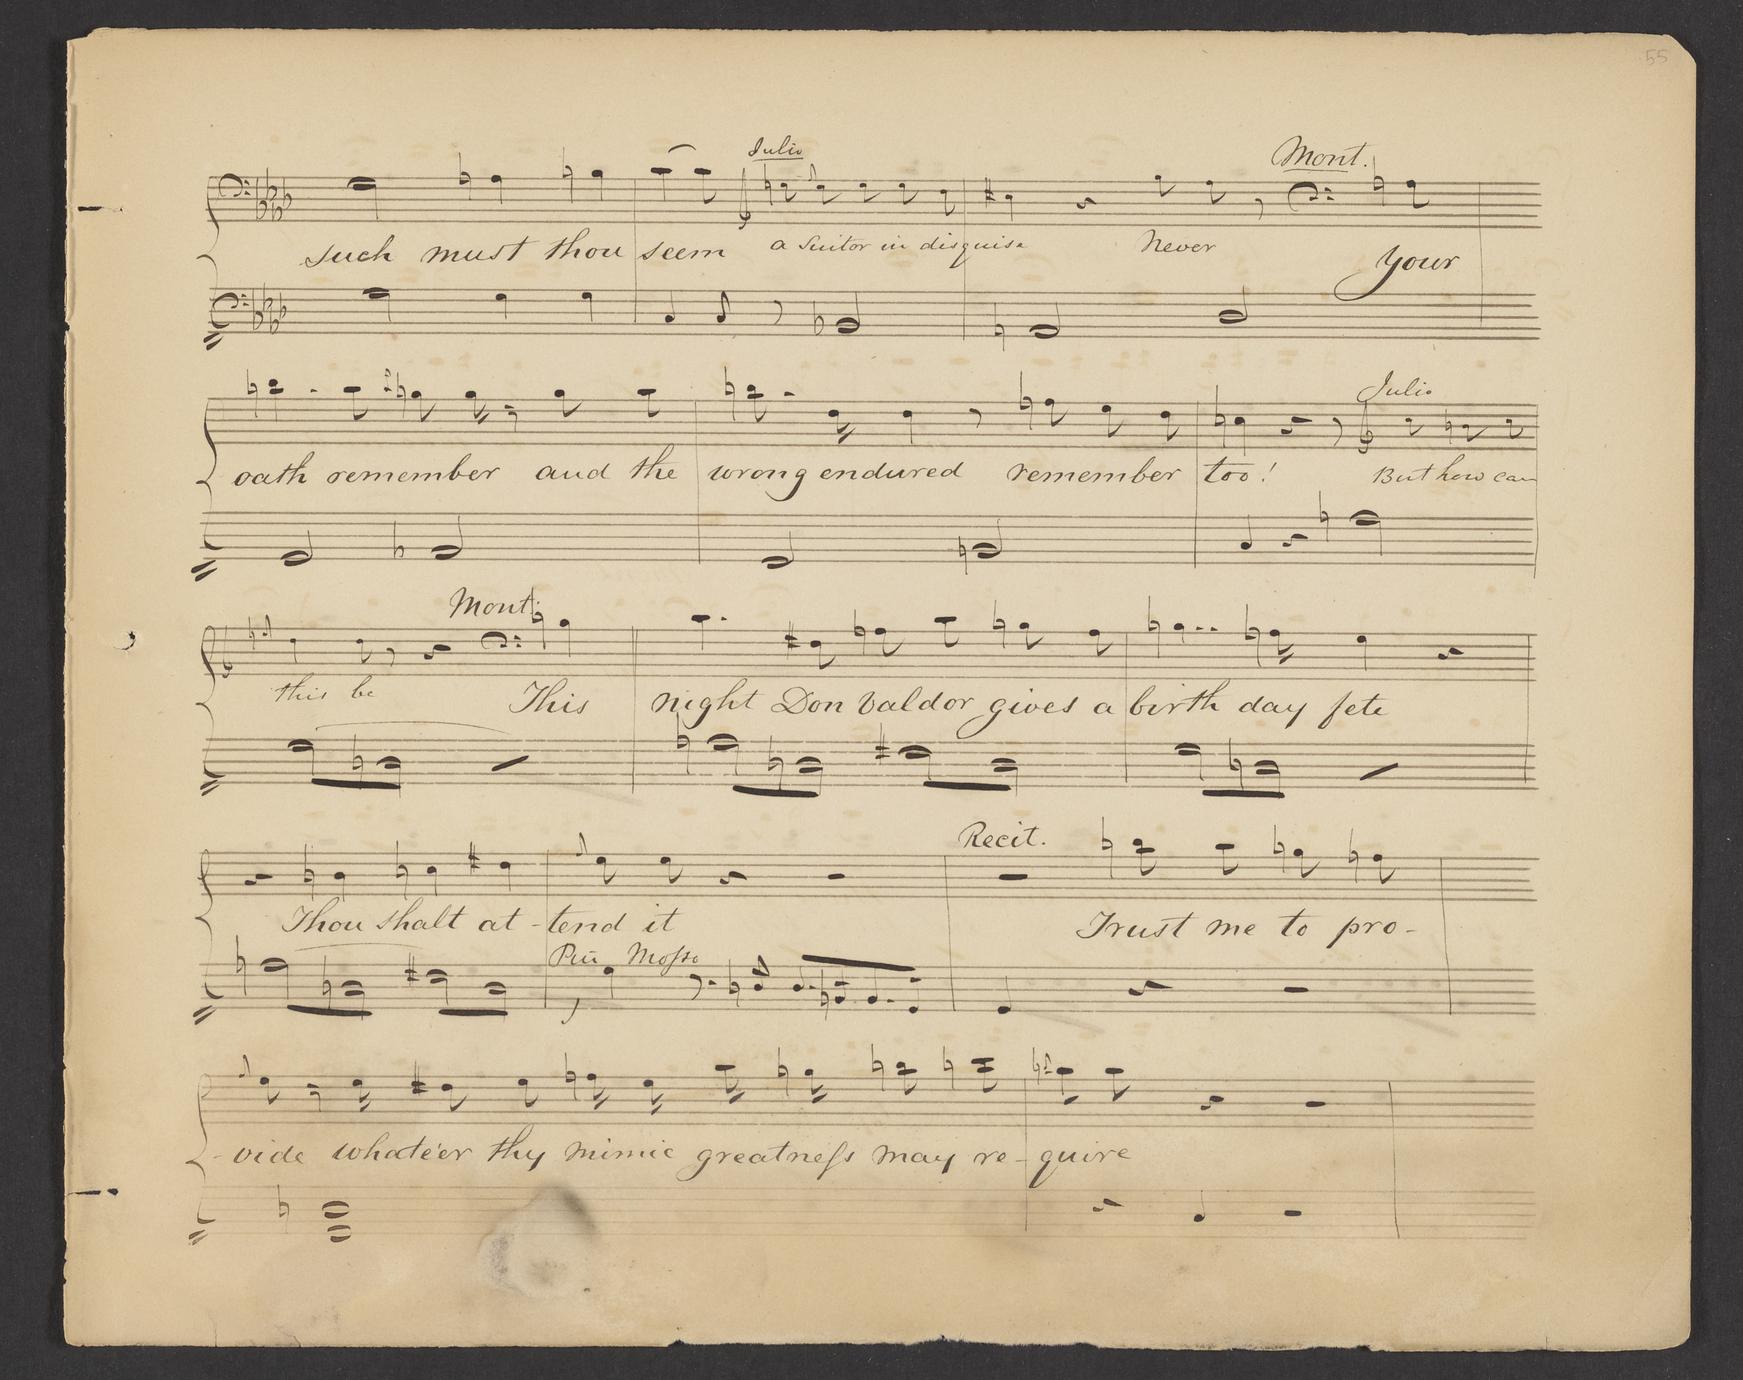 55
Julio
Mont.
such must thou seem a Suitor in disguise Never your
Julio
oath remember and the wrong endured remember too! But how can
Mont.
this be This night Don Valdor gives a birth day fete
Recit.
Thou shalt at-tend it Trust me to pro-
Più Mosso
f
-vide whate'er thy mimic greatness may re-quire